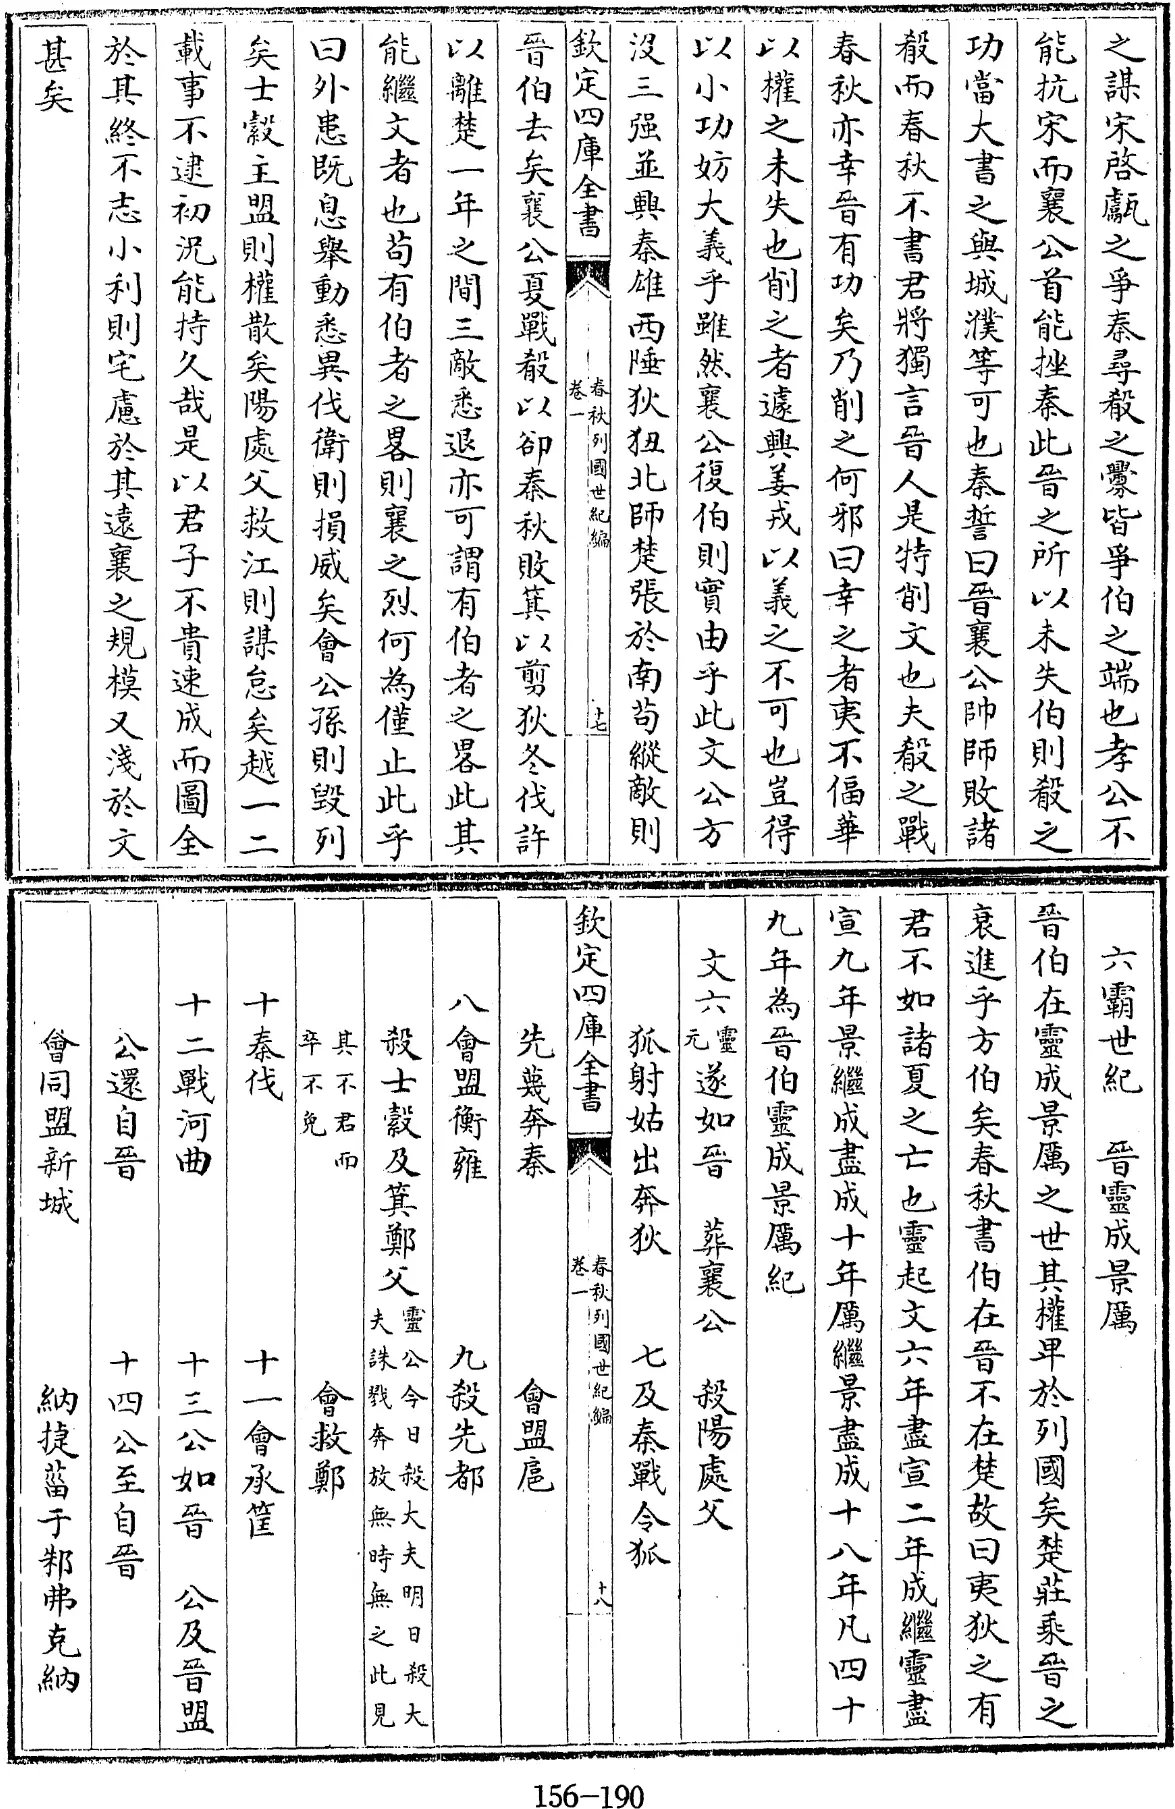 之謀宋啓甗之爭秦尋殽之釁皆爭伯之端也孝公不
能抗宋而襄公首能挫秦此晉之所以未失伯則殽之
功當大書之與城濮等可也秦誓曰晉襄公帥師敗諸
殽而春秋不書君將獨言晉人是特削文也夫殽之戰
春秋亦幸晉有功矣乃削之何邪曰幸之者夷不偪華
以權之未失也削之者遽興姜戎以義之不可也豈得
以小功妨大義乎雖然襄公復伯則實由乎此文公方
沒三强並興秦雄西陲狄狃北師楚張於南苟縱敵則
欽定四庫全書
春秋列國世紀編
卷一
十七
晉伯去矣襄公夏戰殽以卻秦秋敗箕以剪狄冬伐許
以離楚一年之間三敵悉退亦可謂有伯者之畧此其
能繼文者也苟有伯者之畧則襄之烈何為僅止此乎
曰外患既息舉動悉異伐衛則損威矣會公孫則毀列
矣士縠主盟則權散矣陽處父救江則謀怠矣越一二
載事不逮初況能持久哉是以君子不貴速成而圖全
於其終不志小利則宅慮於其遠襄之規模又淺於文
甚矣
六霸世紀 晉靈成景厲
晉伯在靈成景厲之世其權卑於列國矣楚莊乘晉之
衰進乎方伯矣春秋書伯在晉不在楚故曰夷狄之有
君不如諸夏之亡也靈起文六年盡宣二年成繼靈盡
宣九年景繼成盡成十年厲繼景盡成十八年凡四十
九年為晉伯靈成景厲紀
文六靈元遂如晉 葬襄公 殺陽處父
狐射姑出奔狄 七及秦戰令狐
欽定四庫全書
春秋列國世紀編
卷一
十八
先蔑奔秦 會盟扈
八會盟衡雍 九殺先都
殺士縠及箕鄭父靈公今日殺大夫明日殺大夫誅戮奔放無時無之此見
其不君而卒不免 會救鄭
十秦伐 十一會承筐
十二戰河曲 十三公如晉 公及晉盟
公還自晉 十四公至自晉
會同盟新城 納捷菑于邾弗克納
156-190